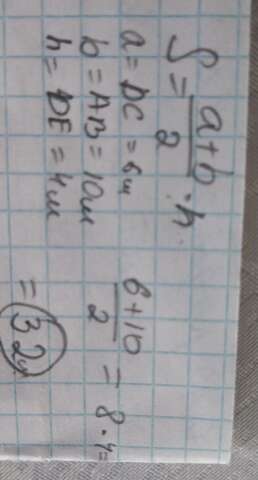 S = a+b/2 · h.
a = DC = 6м
b = AB = 10м
h = DE = 4м
6+10/2 = 8·4=
= 32м